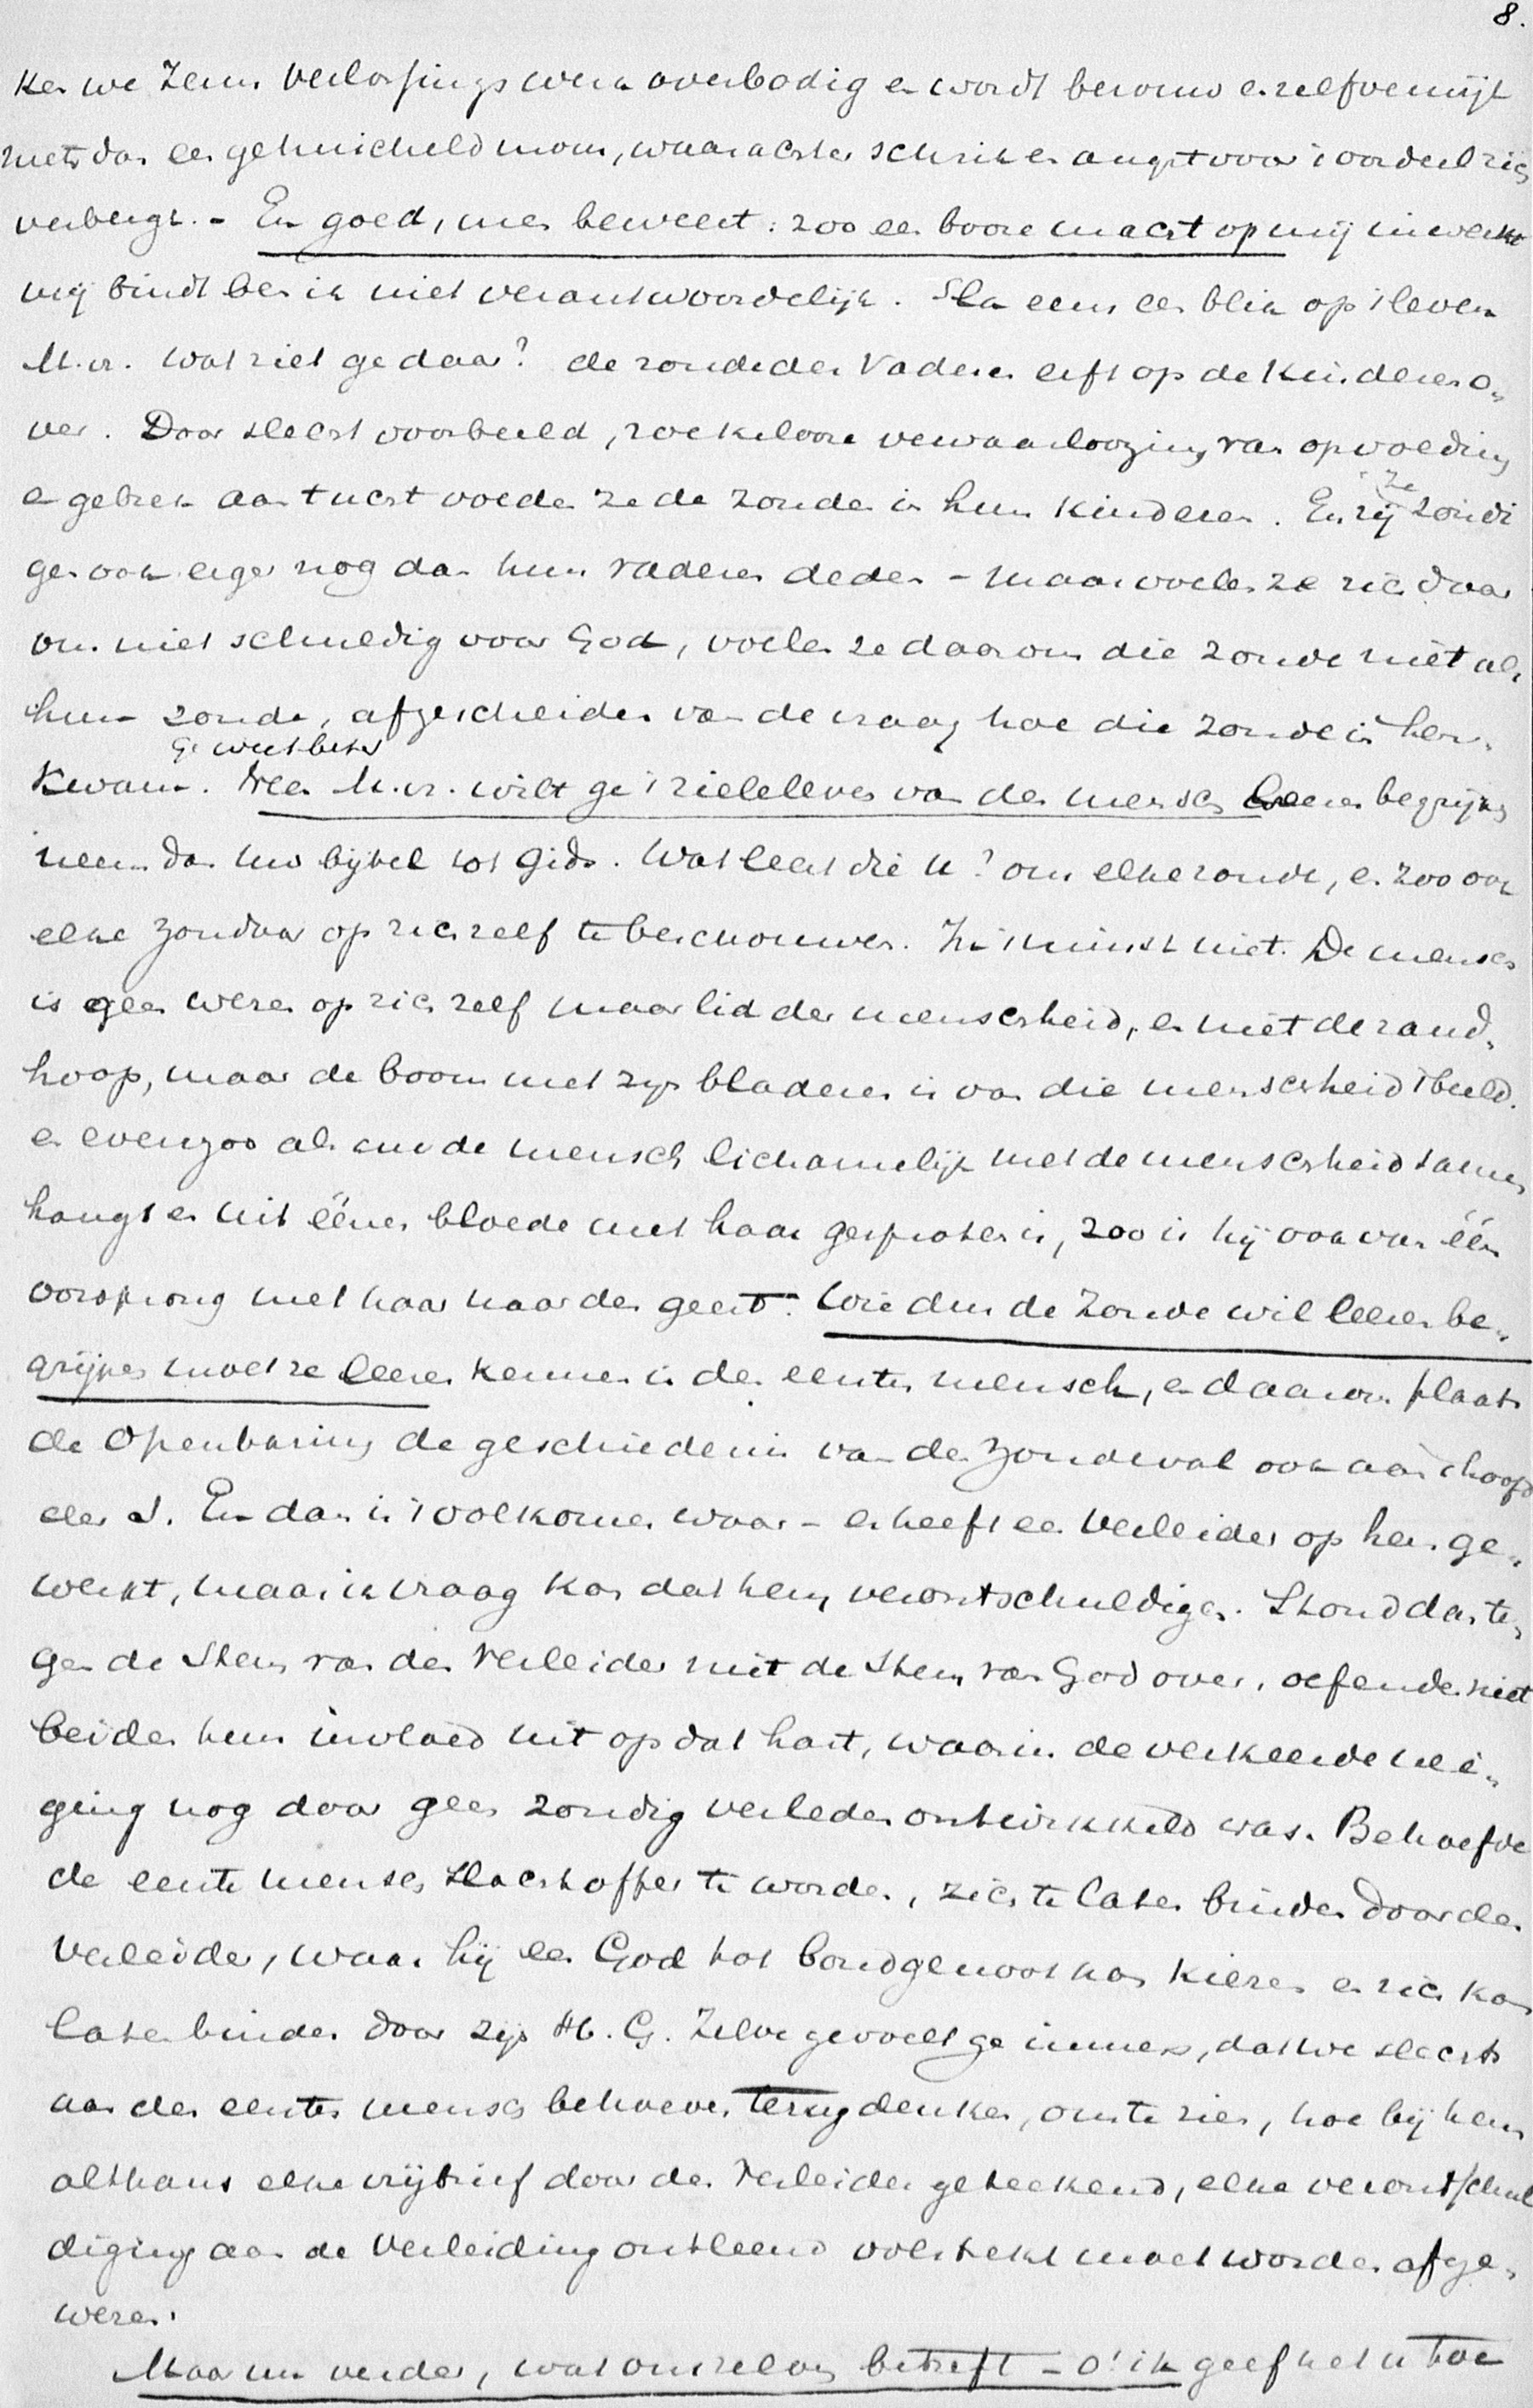 8.
ken we Zeun Verlossingswerk overbodig en wordt berouw en zelfverwijt
niets dan een gehuicheld mom, waarachter schrik en angst voor 't oordeel zich
verbergt. - En goed, men beweert: zoo een booze macht op mij inwerkt
mij bindt ben ik niet verantwoordelijk. Sla eens een blik op 't leven
M.vr. wat ziet ge daar? de zonde der Vaderen erft op de Kinderen o-
ver. Door slecht voorbeeld, roekelooze verwaarloozing van opvoeding
en gebrek aan tucht voeden ze de zonde in hun Kinderen. En zij ze zondi
gen ook erger nog dan hun vaderen deden - maar voelen ze zich daar
om niet schuldig voor God, voelen ze daarom die zonde niet als
hun zonde, afgescheiden van de vraag hoe die zonde in hen
Ge weet beter
kwam. Neen M.vr. wilt ge 't zieleleven van den mensch leeren begrijpen
neem dan Uw bijbel tot gids. Wat leert die U? om elke zonde, en zoo ook
elke Zondaar op zich zelf te beschouwen. In 't minst niet. De mensch
is geen wezen op zich zelf maar lid der menschheid, en niet de zand-
hoop, maar de boom met zijn bladeren is van die menschheid 't beeld.
en evenzoo als nu de mensch lichamelijk met de menschheid samen
hangt en uit éénen bloede met haar gesproten is, zoo is hij ook van één
oorsprong met haar naar den geest. Wie dus de Zonde wil leeren be-
grijpen moet ze leeren kennen in den eersten mensch, en daarom plaatst
de Openbaring de geschiedenis van den Zondeval ook aan 't hoofd
der S. En dan is 't volkomen waar - er heeft een Verleider op hen ge-
werkt, maar ik vraag kan dat hem verontschuldigen. Stond dan te-
gen de Stem van den Verleider niet de Stem van God over, oefenden niet
beiden hun invloed uit op dat hart, waarin de verkeerde nei-
ging nog door geen zondig verleden ontwikkeld was. Behoefde
de eerste mensch slachtoffer te worden, zich te laten binden door den
Verleider, waar hij een God tot bondgenoot kon kiezen en zich kon
laten binden door zijn H. G. Zelve gevoelt ge immers, dat we slechts
aan den eersten mensch behoeven terug denken, om te zien, hoe bij hem
althans elke vrijbrief door den Verleider geteekend, elke verontschul
diging aan de Verleiding ontleend volstrekt moet worden afge-
wezen.
Maar nu verder, wat ons zelven betreft - o! ik geef het u toe